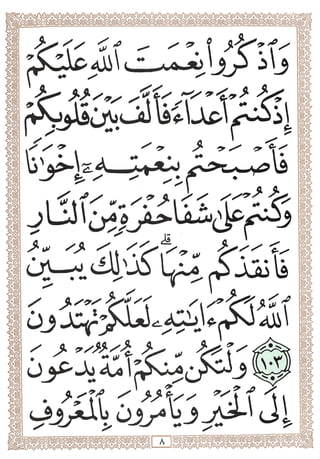 وَٱذۡكُرُواْ نِعۡمَتَ ٱللَّهِ عَلَيۡكُمۡ
إِذۡ كُنتُمۡ أَعۡدَآءٗ فَأَلَّفَ بَيۡنَ قُلُوبِكُمۡ
فَأَصۡبَحۡتُم بِنِعۡمَتِهِۦٓ إِخۡوَٰنٗا
وَكُنتُمۡ عَلَىٰ شَفَا حُفۡرَةٖ مِّنَ ٱلنَّارِ
فَأَنقَذَكُم مِّنۡهَاۗ كَذَٰلِكَ يُبَيِّنُ
ٱللَّهُ لَكُمۡ ءَايَٰتِهِۦ لَعَلَّكُمۡ تَهۡتَدُونَ
١٠٣ وَلۡتَكُن مِّنكُمۡ أُمَّةٞ يَدۡعُونَ
إِلَى ٱلۡخَيۡرِ وَيَأۡمُرُونَ بِٱلۡمَعۡرُوفِ
٨